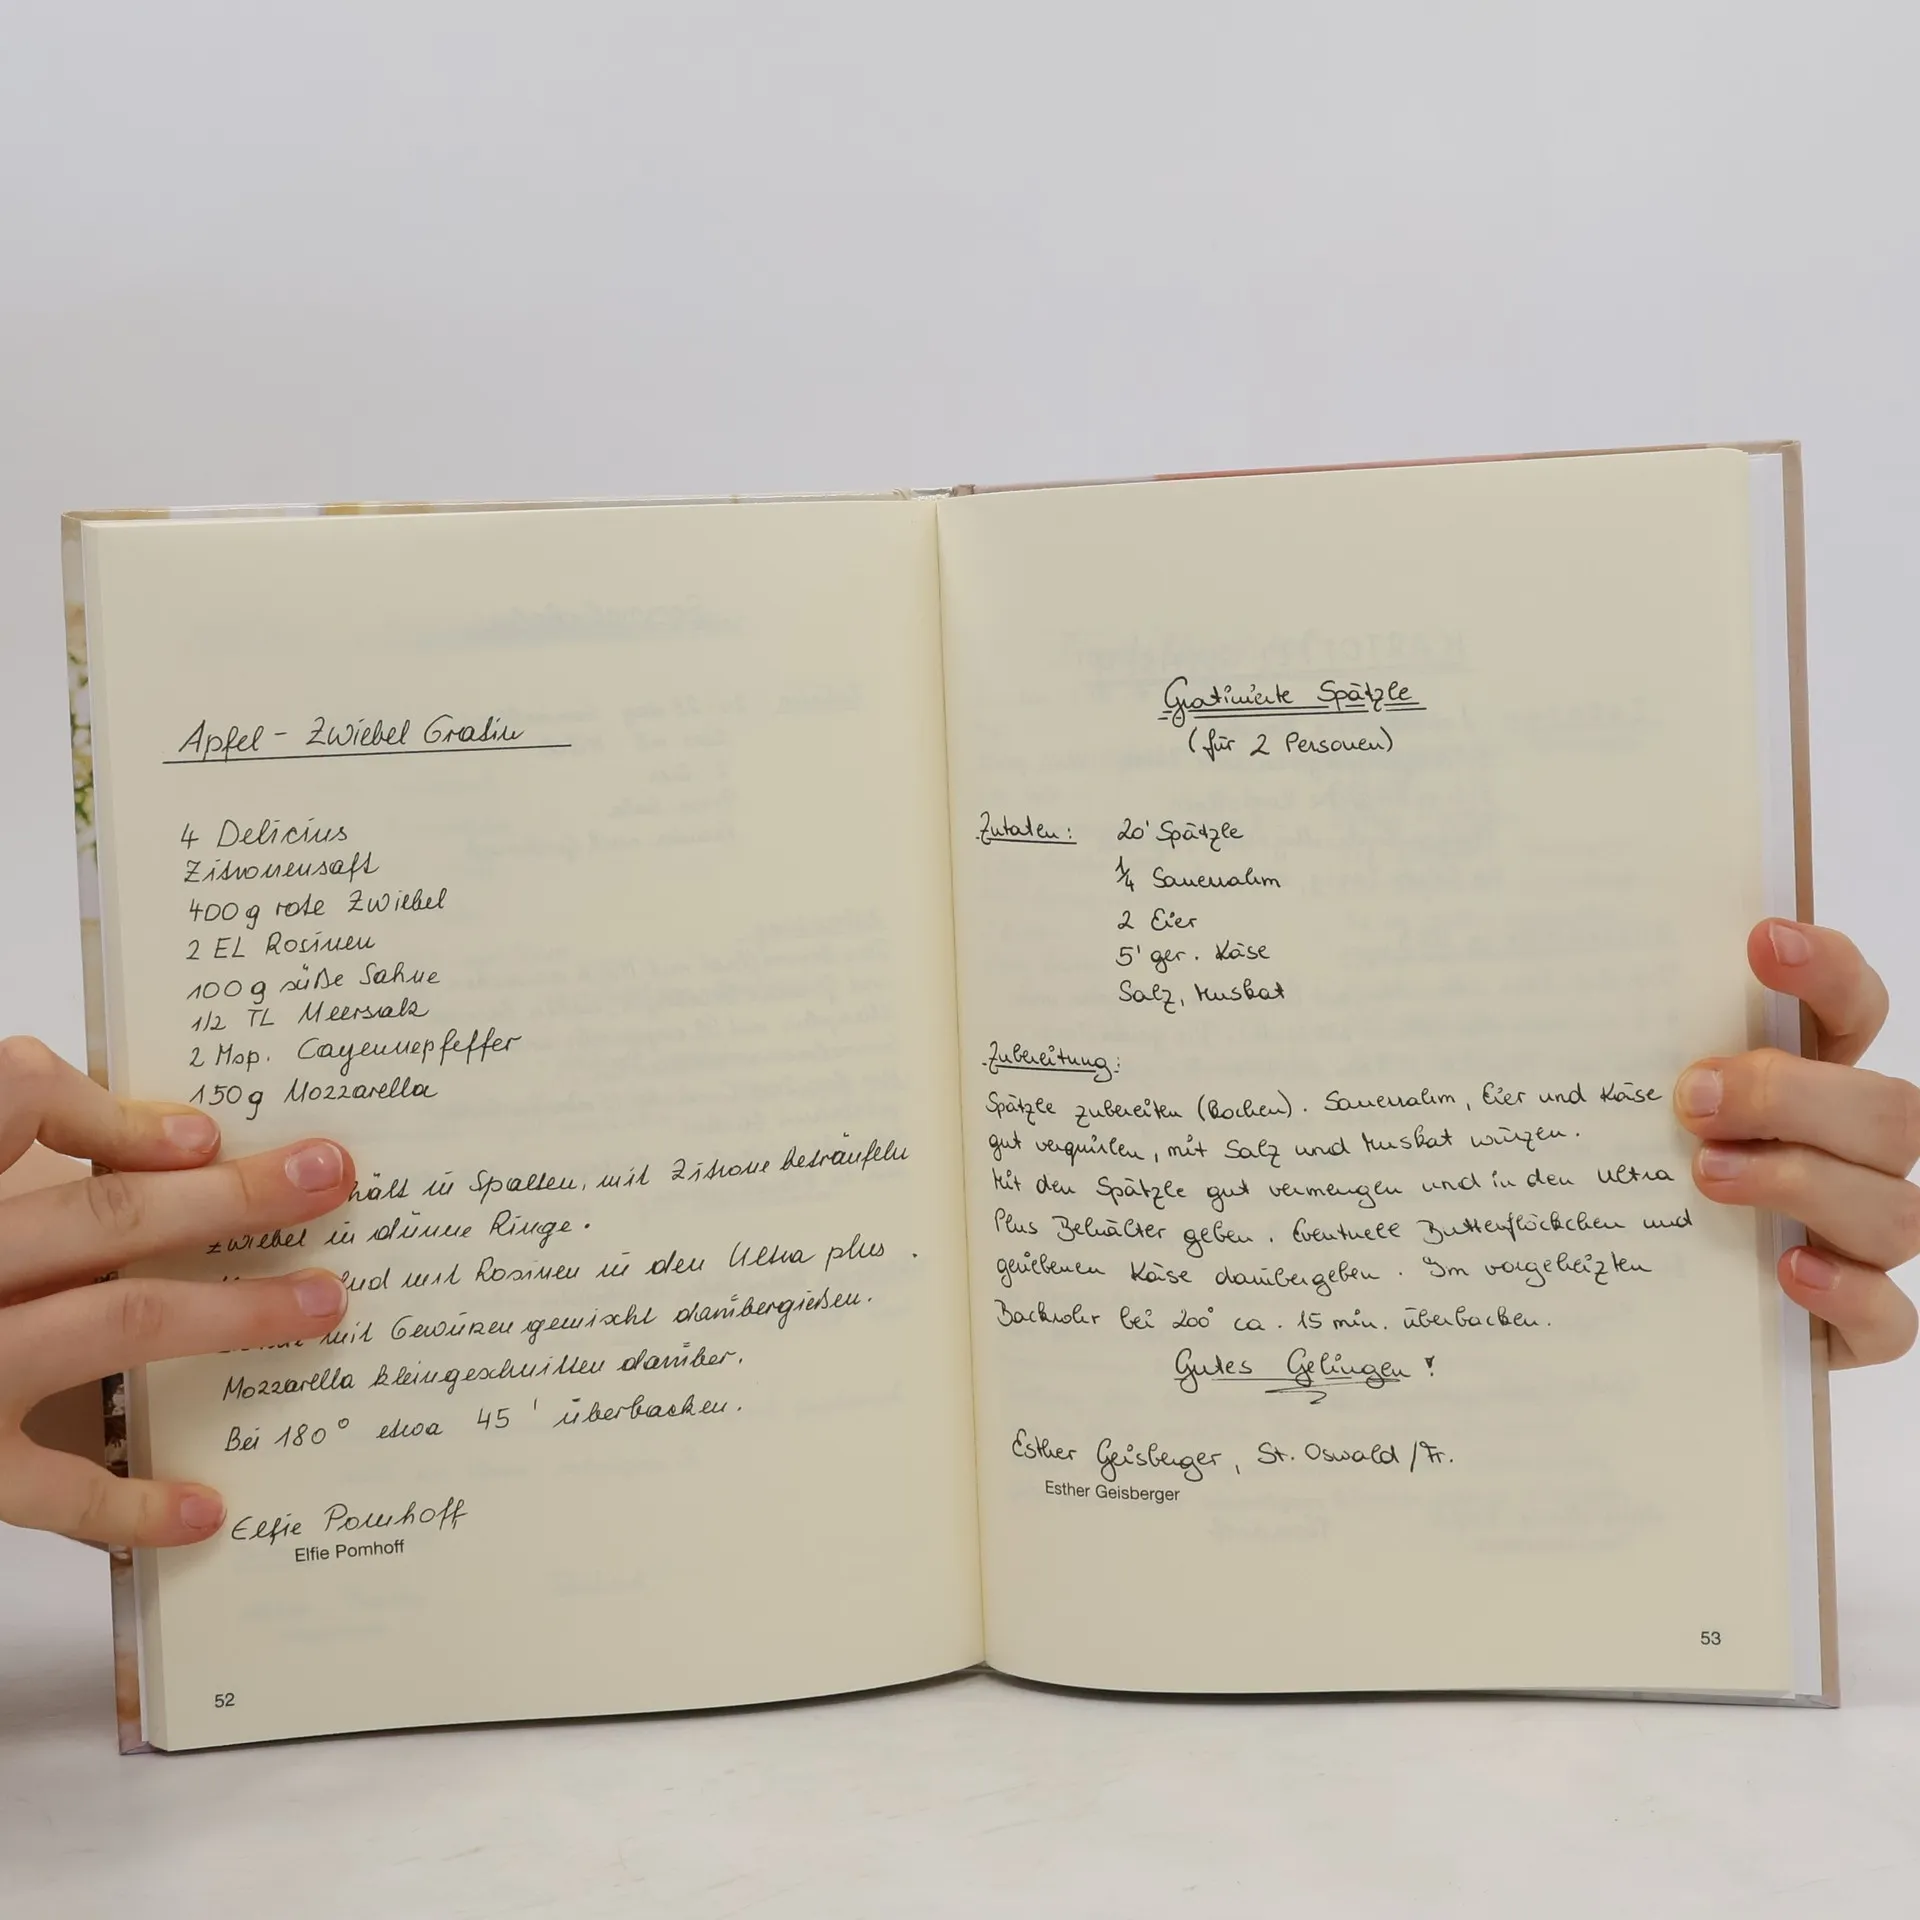 Apfel - Zwiebel Gratin
4 Delicius
Zitronensaft
400 g rote Zwiebel
2 EL Rosinen
100 g süße Sahne
1/2 TL Meersalz
2 Msp. Cayennepfeffer
150 g Mozzarella
in Spalten, mit Zitrone beträufeln
Zwiebel in dünne Ringe.
mit Rosinen in den Ultra plus .
mit Gewürzen gemischt darübergießen.
Mozzarella kleingeschnitten darüber.
Bei 180° etwa 45 ' überbacken.
Elfie Pomhoff
Elfie Pomhoff
52
Gratinierte Spätzle
(für 2 Personen)
Zutaten: 20' Spätzle
1/4 Sauerrahm
2 Eier
5' ger. Käse
Salz, Muskat
Zubereitung:
Spätzle zubereiten (kochen). Sauerrahm, Eier und Käse
gut verquirlen, mit Salz und Muskat würzen.
Mit den Spätzle gut vermengen und in den Ultra
Plus Behälter geben. Eventuell Butterflöckchen und
geriebenen Käse darübergeben. Im vorgeheizten
Backrohr bei 200° ca. 15 min. überbacken.
Gutes Gelingen!
Esther Geisberger, St. Oswald/Fr.
Esther Geisberger
53